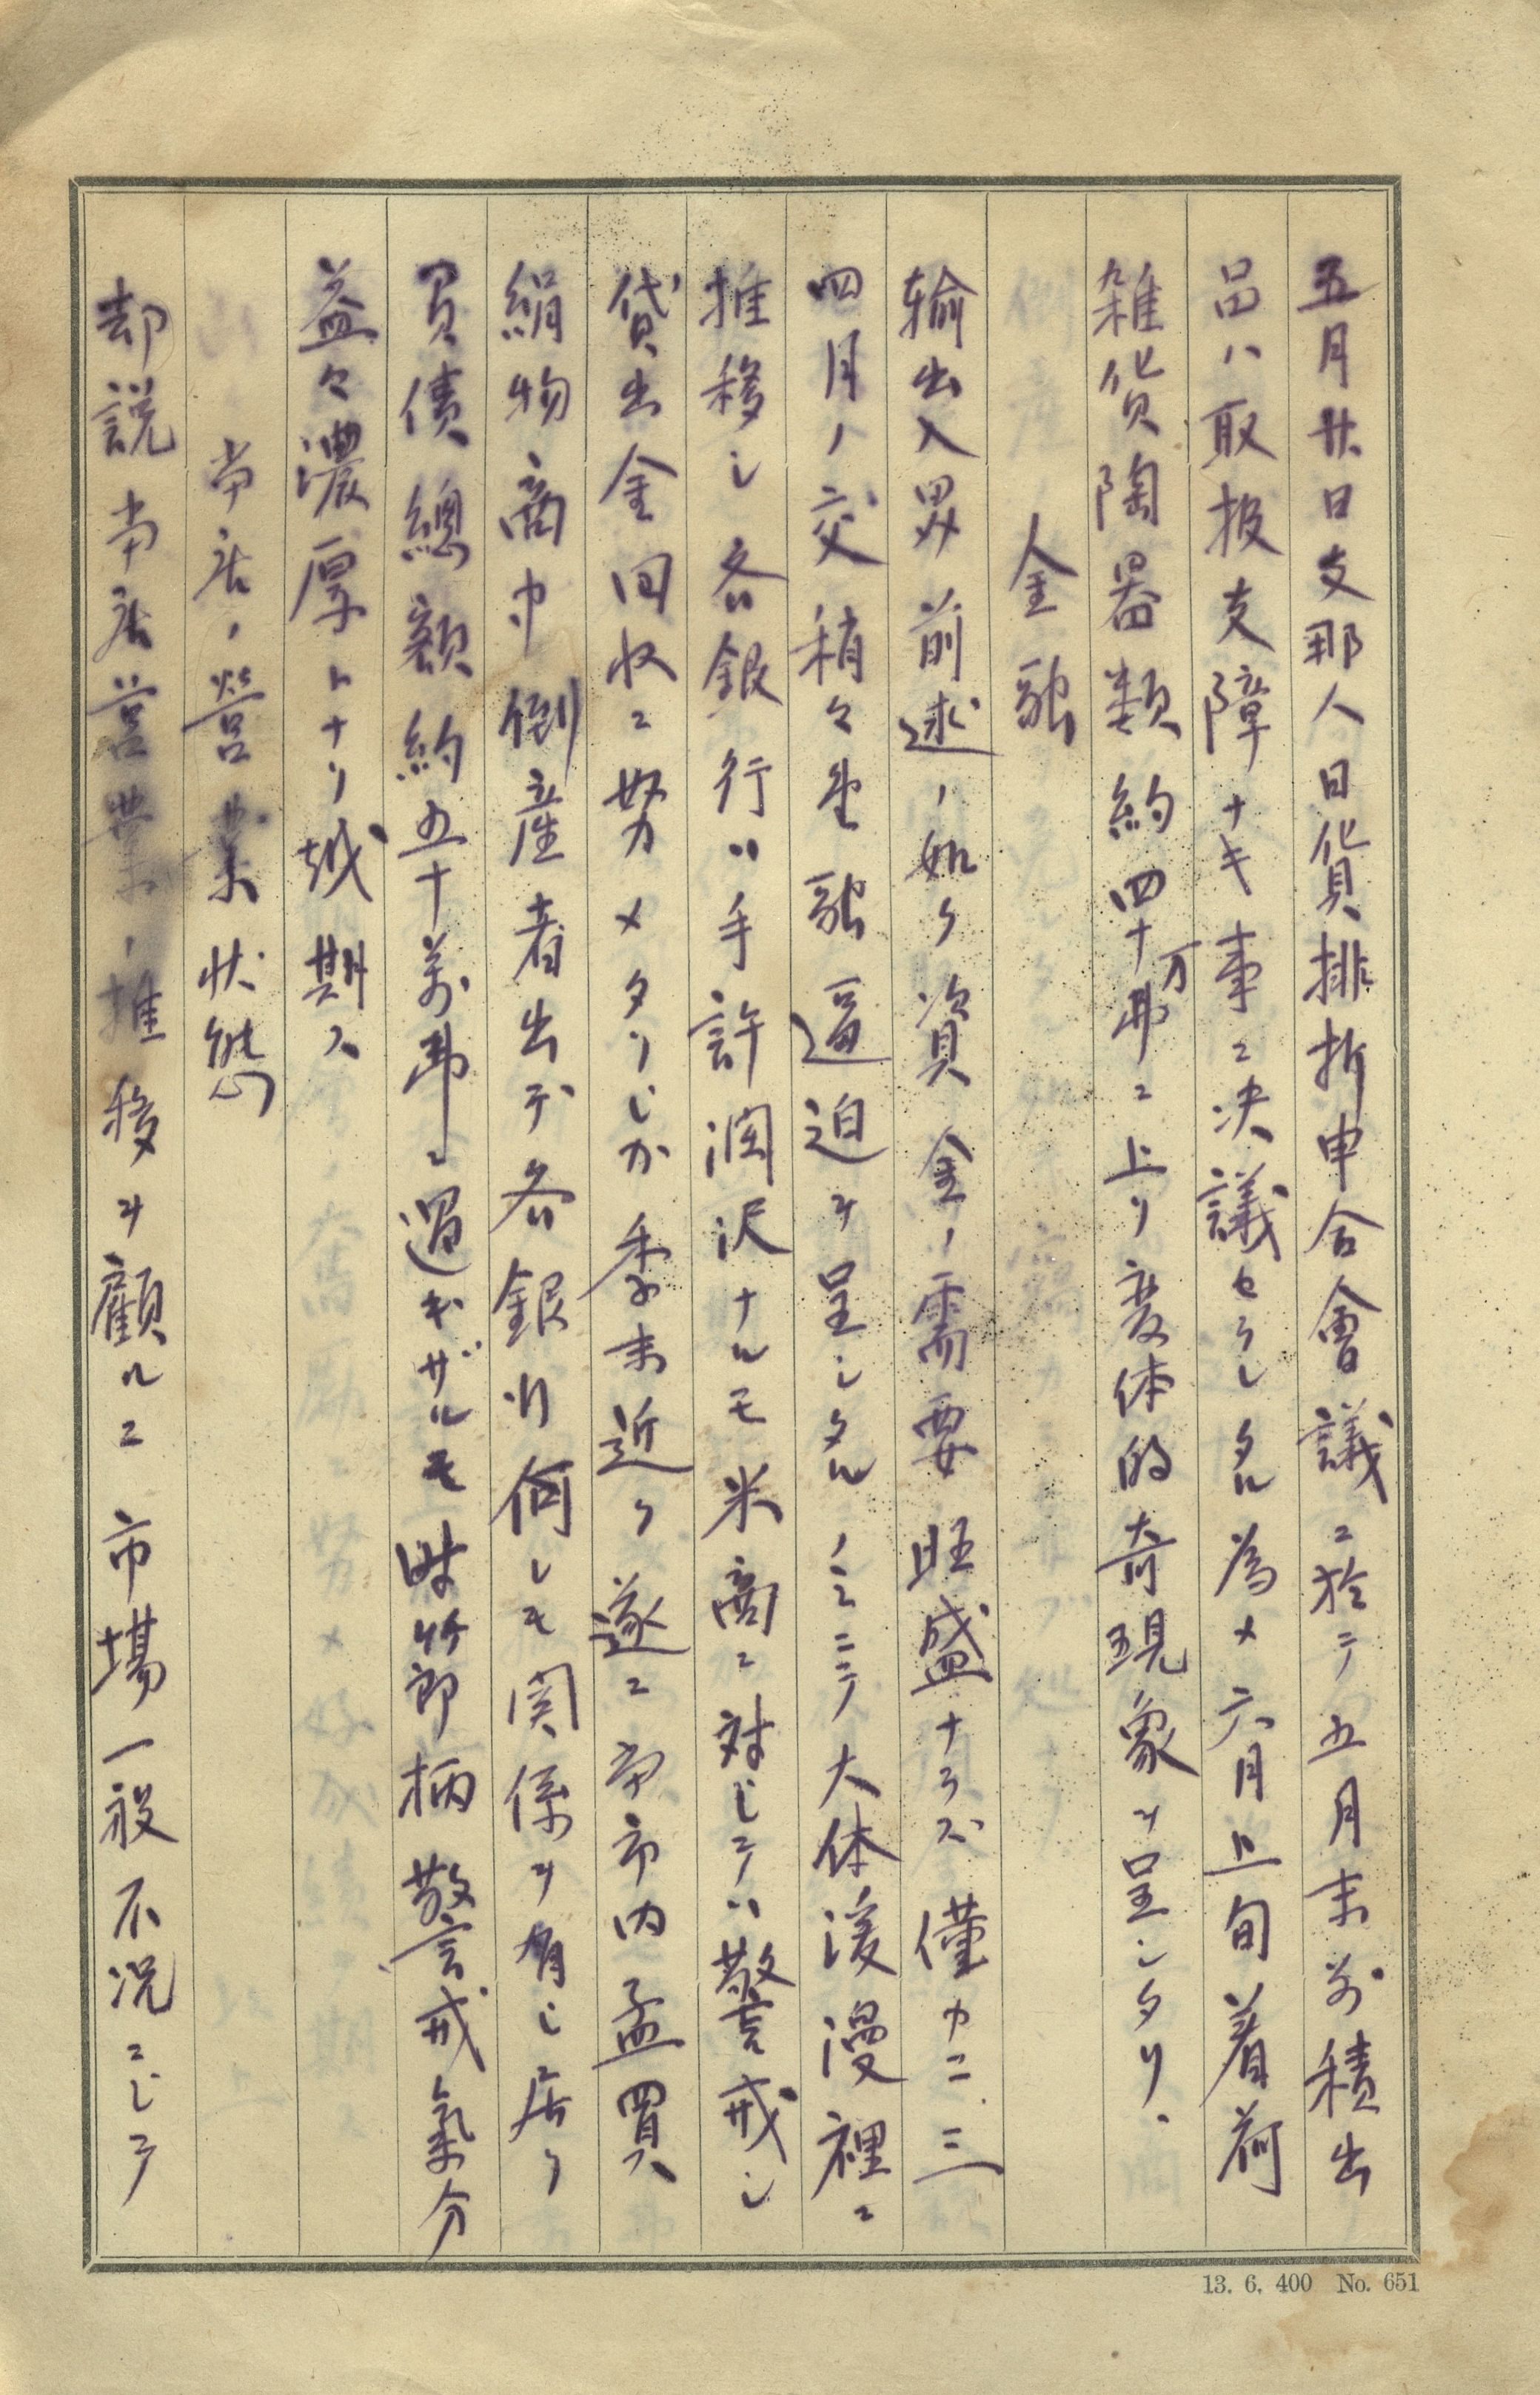 五月廿日支那人日貨排斥申合會議ニ於テ五月末前積出
品ハ取扱支障ナキ事ニ決議セラレタル為メ六月上旬着荷
雑貨陶器類約四十万弗ニ上リ変体的奇現象ヲ呈シタリ、
金融
輸出入界前述ノ如ク資金ノ需要旺盛ナラズ僅カニ三
四月ノ交稍々金融逼迫ヲ呈シタルノミニテ大体緩漫裡ニ
推移シ各銀行ハ手許潤沢ナルモ米商ニ対シテハ警戒シ
貸出金回収ニ努メタリシカ季末近ク遂ニ当市内孟買
絹物商中倒産者出デ各銀行何レモ関係ヲ有シ居リ
負債總額約五十萬弗ニ過ギザルモ時節柄警戒氣分
益々濃厚トナリ越期ス
当店ノ営業状態
却説当店営業ノ推移ヲ顧ルニ市場一般不況ニシテ
13. 6. 400 No. 651